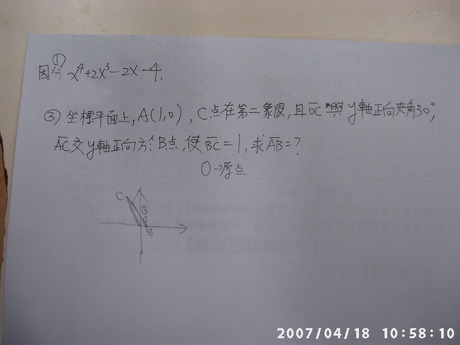 ①
因分 x⁴+2x³-2x-4.
③ 坐標平面上, A(1,0), C点在第二象限, 且OC與y軸正向夾角30°,
AC交y軸正向方於B点, 使BC=1, 求AB=?
O→原点
C
B
2007/04/18 10:58:10